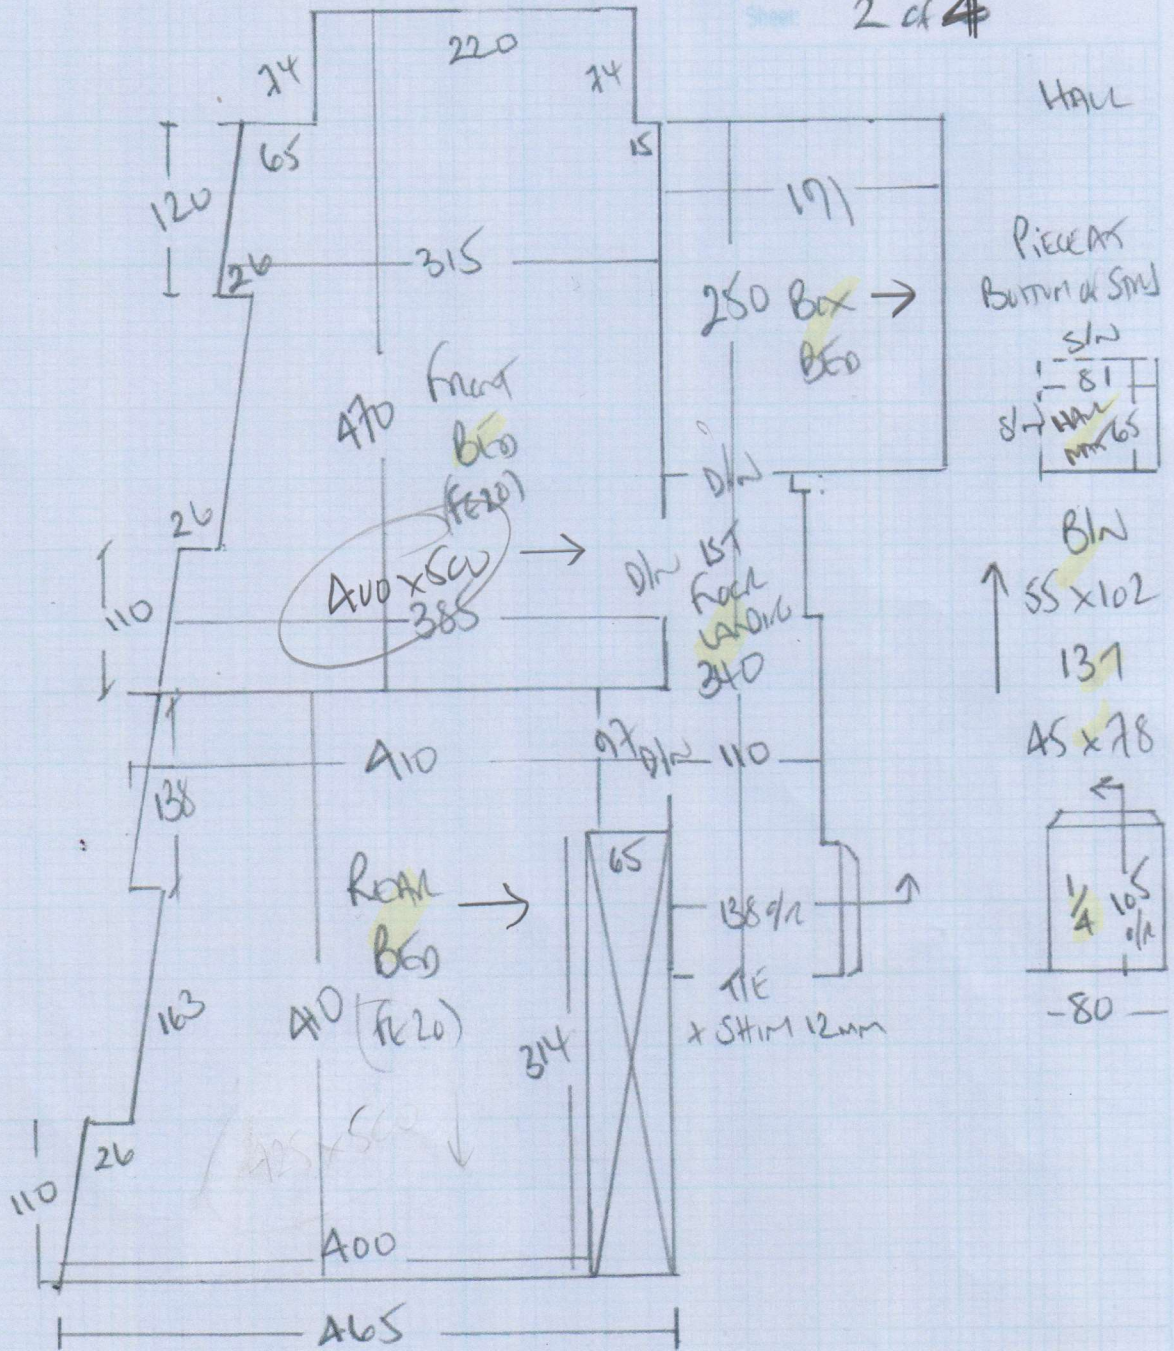 Sheet: 2 of 4
HALL
220
74
74
65
15
120
26
315
171
250 BOX →
BED
PIECE AT
BOTTOM OF STAIRS
S/N
81
S/N HALL
MAT 65
FRONT
BED
(FE20)
470
400 x 500 →
385
26
110
D/N
D/N 1ST
FLOOR
LANDING
340
B/N
55 x 102
137
45 x 78
410
97
D/N
110
138
REAR →
BED
(FE20)
65
138 O/R
TIE
+ SHIM 12MM
1/4
105
O/R
80
163
410
314
425 x 500
26
110
400
465